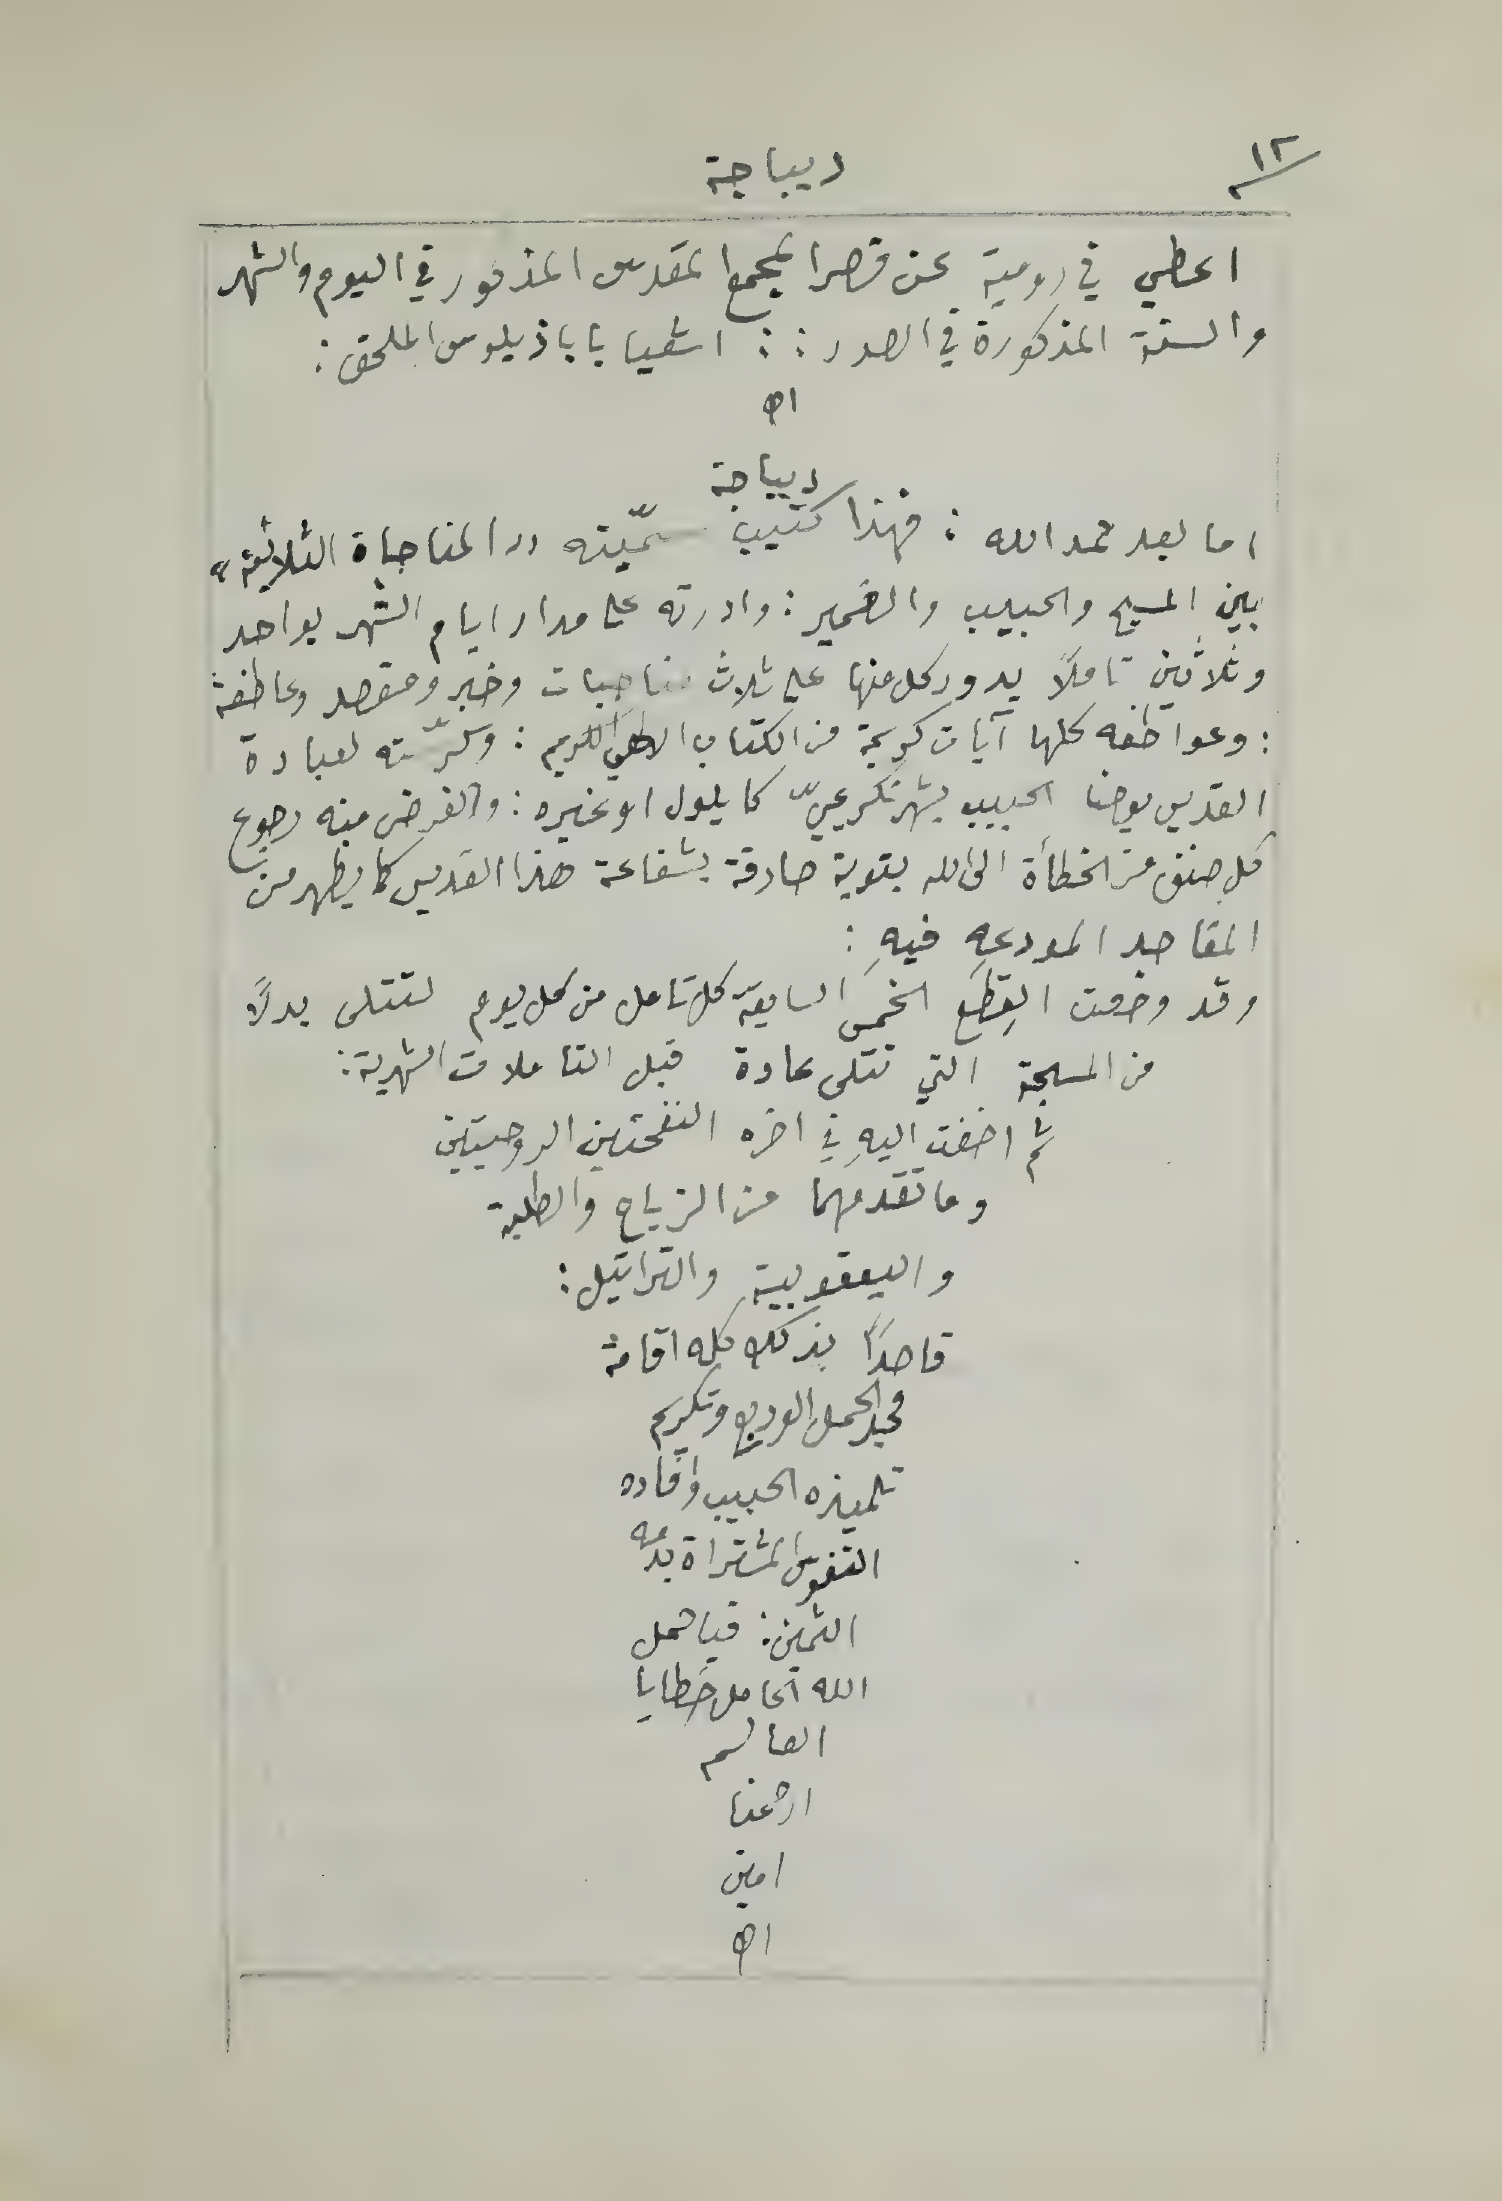 ١٢
ديباجة
اعطي في رومية عن قصر المجمع المقدس المذكور في اليوم والشهر
والسنة المذكورة في الصدر : : اشعيا باباذبلوس الملحق :
اه
ديباجة
اما بعد حمد الله : فهذا كتيب سمّيته «المناجاة الثلاثية»
بين المسيح والحبيب والضمير : وادرته على مدار ايام الشهر بواحد
وثلاثين تاملاً يدور كل منها على ثلاث مناجيات وخبر ومقصد وعاطفة
: وعواطفه كلها آيات كريمة من الكتاب الالهي الكريم : وكرّسته لعبادة
القديس يوحنا الحبيب بشهر تكريميّ كايلول او غيره : والغرض منه رجوع
كل صنف من الخطأة الى الله بتوبة صادقة بشفاعة هذا القديس كما يظهر من
المقاصد المودعه فيهِ :
وقد وضعت القِطَع الخمس السابقة كل تامل من كل يوم لتتلى بدلاً
من المسبحة التي تتلى عادة قبل التاملات الشهرية :
ثم اضفت اليهِ في اخره النفحتين الروحيتين
وما تقدمهما من الزياح والطلبة
واليعقوبية والتراتيل :
قاصداً بذلك كله اقامة
مجد الحمل الوديع وتكريم
تلميذه الحبيب وافاده
النفوس المشتراة بدمه
الثمين : فيا حمل
الله الحامل خطايا
العالم
ارحمنا
امين
اه